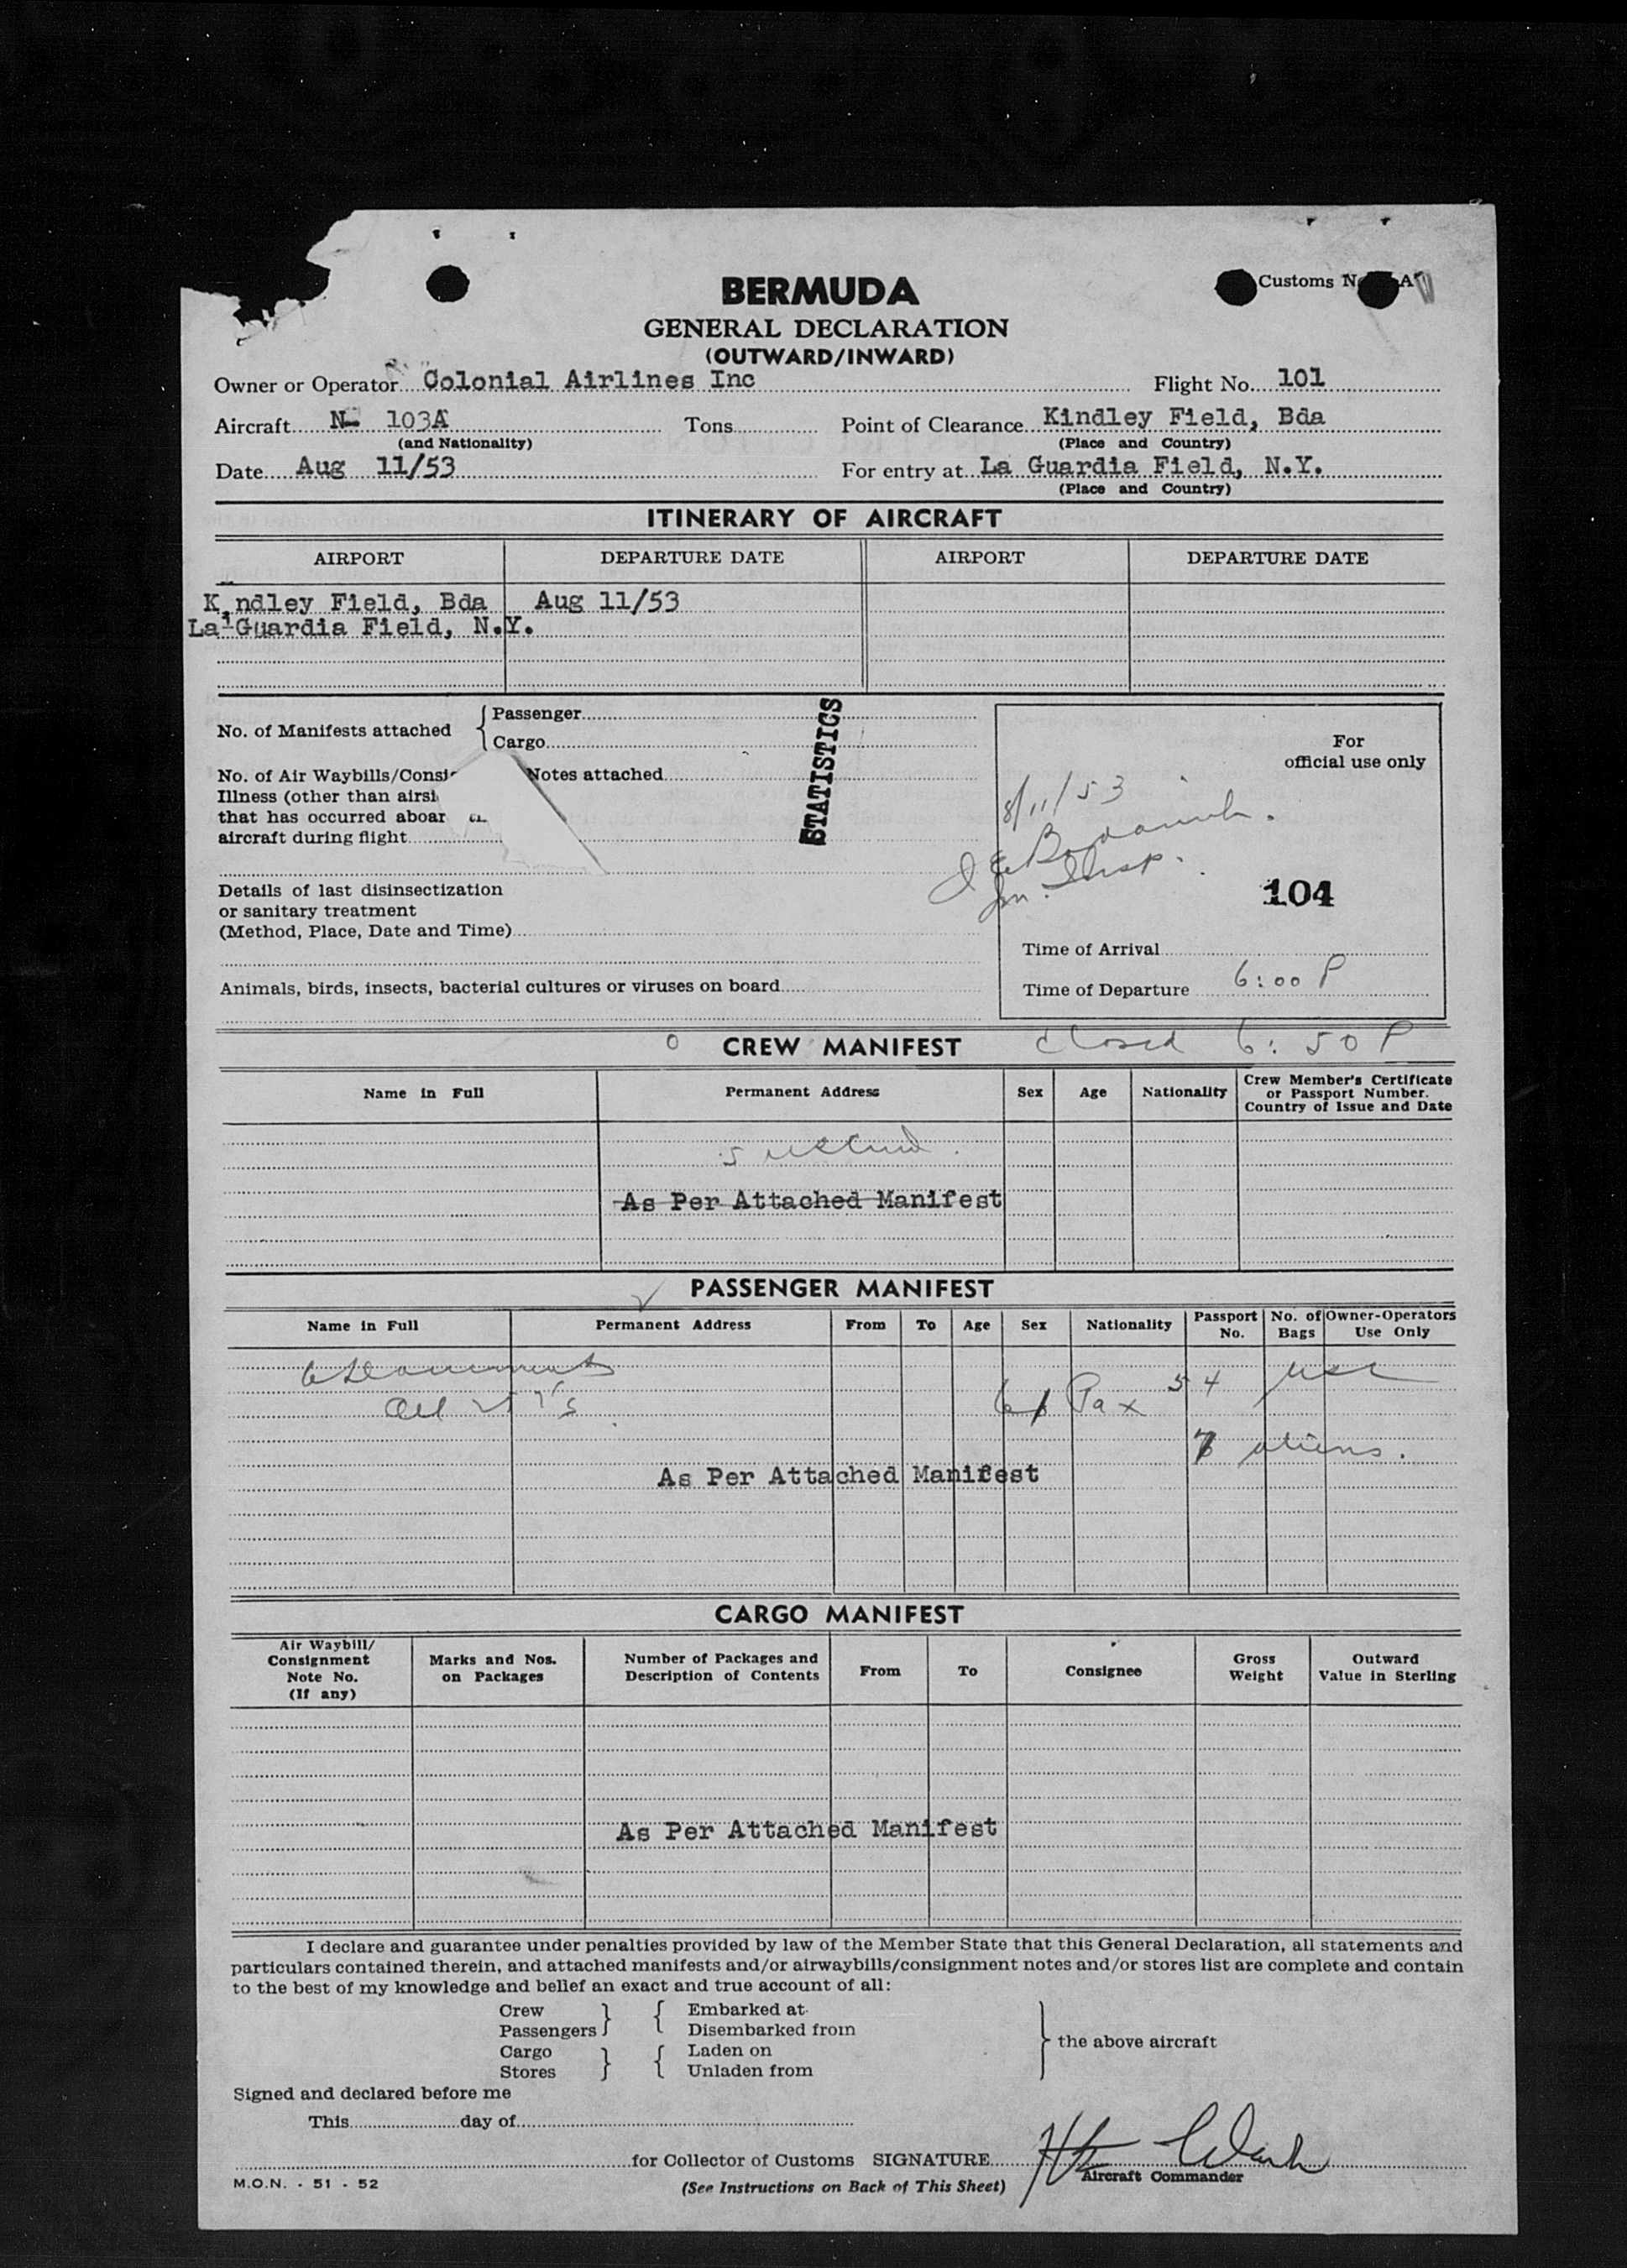 BERMUDA
Customs N A
GENERAL DECLARATION
(OUTWARD/INWARD)
Owner or Operator Colonial Airlines Inc Flight No. 101
Aircraft N- 103A Tons Point of Clearance Kindley Field, Bda
(and Nationality) (Place and Country)
Date Aug 11/53 For entry at La Guardia Field, N.Y.
(Place and Country)
ITINERARY OF AIRCRAFT
AIRPORT DEPARTURE DATE AIRPORT DEPARTURE DATE
Kindley Field, Bda Aug 11/53
La Guardia Field, N.Y.
No. of Manifests attached { Passenger
Cargo
STATISTICS
For
official use only
No. of Air Waybills/Consi Notes attached
Illness (other than airsi
that has occurred aboar
aircraft during flight
8/11/53
Im. Insp.
104
Details of last disinsectization
or sanitary treatment
(Method, Place, Date and Time)
Time of Arrival
Animals, birds, insects, bacterial cultures or viruses on board
Time of Departure 6:00 P
0 CREW MANIFEST closed 6:50 P
Name in Full Permanent Address Sex Age Nationality Crew Member's Certificate
or Passport Number.
Country of Issue and Date
5
As Per Attached Manifest
PASSENGER MANIFEST
Name in Full Permanent Address From To Age Sex Nationality Passport No. No. of Bags Owner-Operators Use Only
6 Documents
All
61 Pax 54 usc
7 aliens.
As Per Attached Manifest
CARGO MANIFEST
Air Waybill/ Consignment Note No. (If any) Marks and Nos. on Packages Number of Packages and Description of Contents From To Consignee Gross Weight Outward Value in Sterling
As Per Attached Manifest
I declare and guarantee under penalties provided by law of the Member State that this General Declaration, all statements and
particulars contained therein, and attached manifests and/or airwaybills/consignment notes and/or stores list are complete and contain
to the best of my knowledge and belief an exact and true account of all:
Crew } { Embarked at
Passengers Disembarked from
} the above aircraft
Cargo } { Laden on
Stores Unladen from
Signed and declared before me
This day of
for Collector of Customs SIGNATURE
Aircraft Commander
M.O.N. - 51 - 52 (See Instructions on Back of This Sheet)